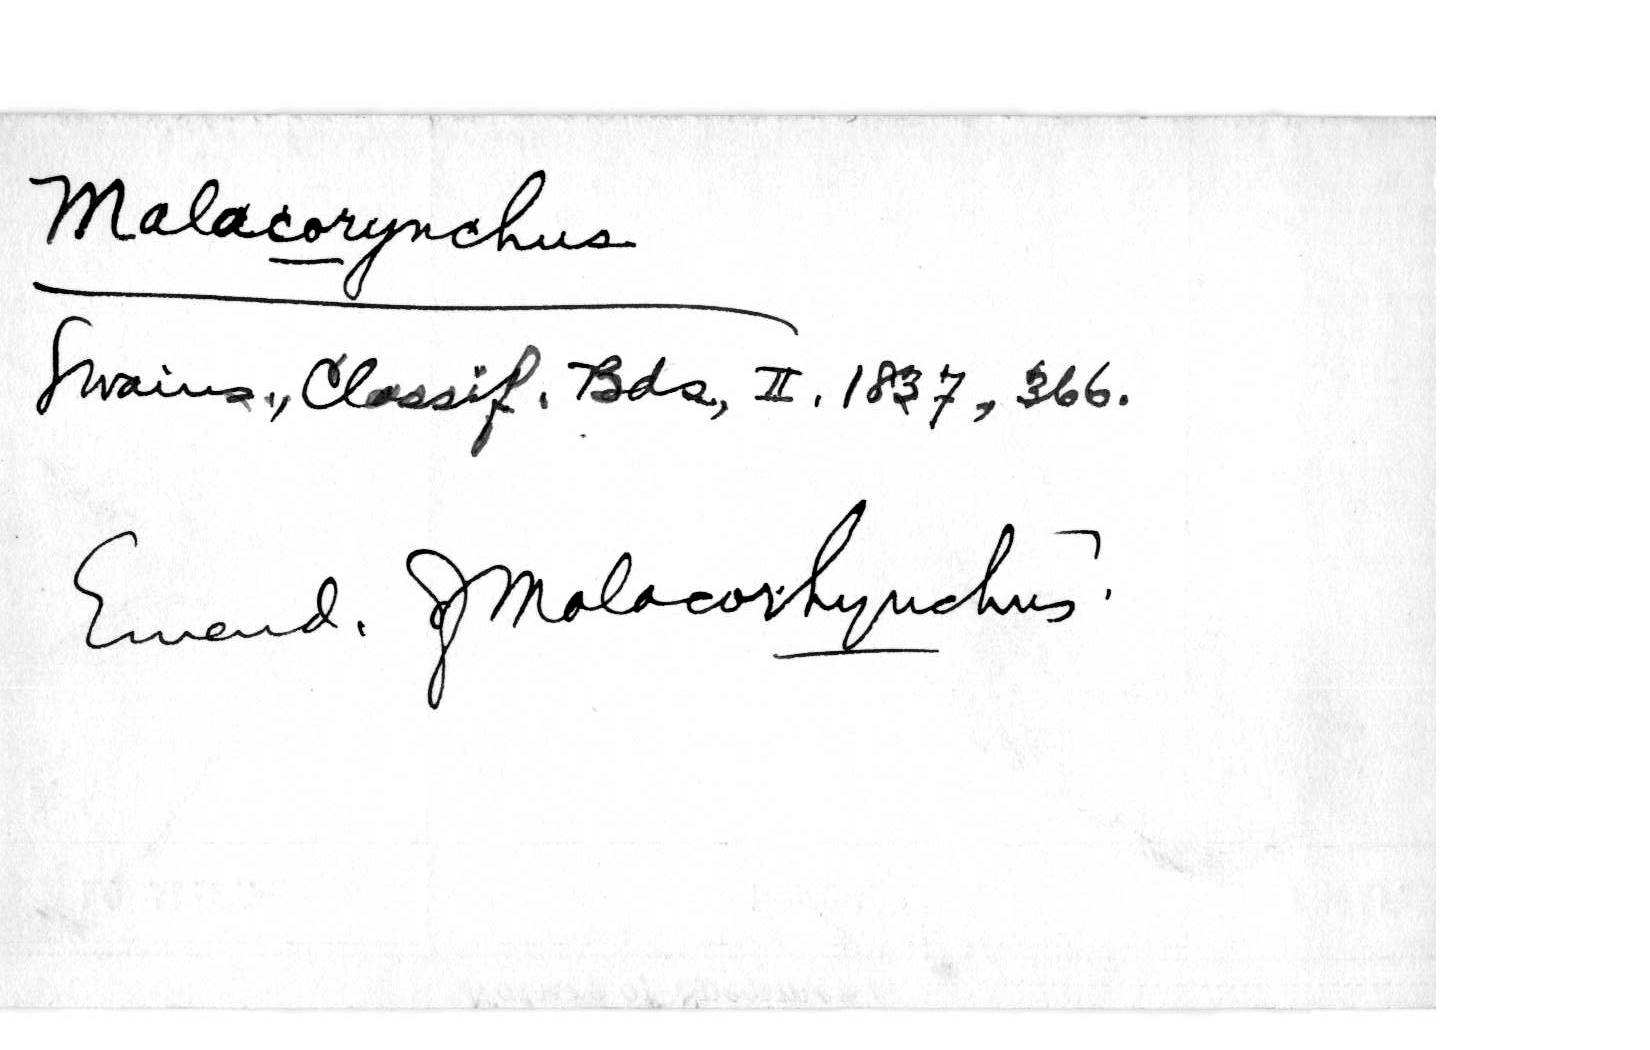 Malacorynchus
Swains., Classif. Bds., II. 1837, 366.
Emend. of Malacorhynchus.